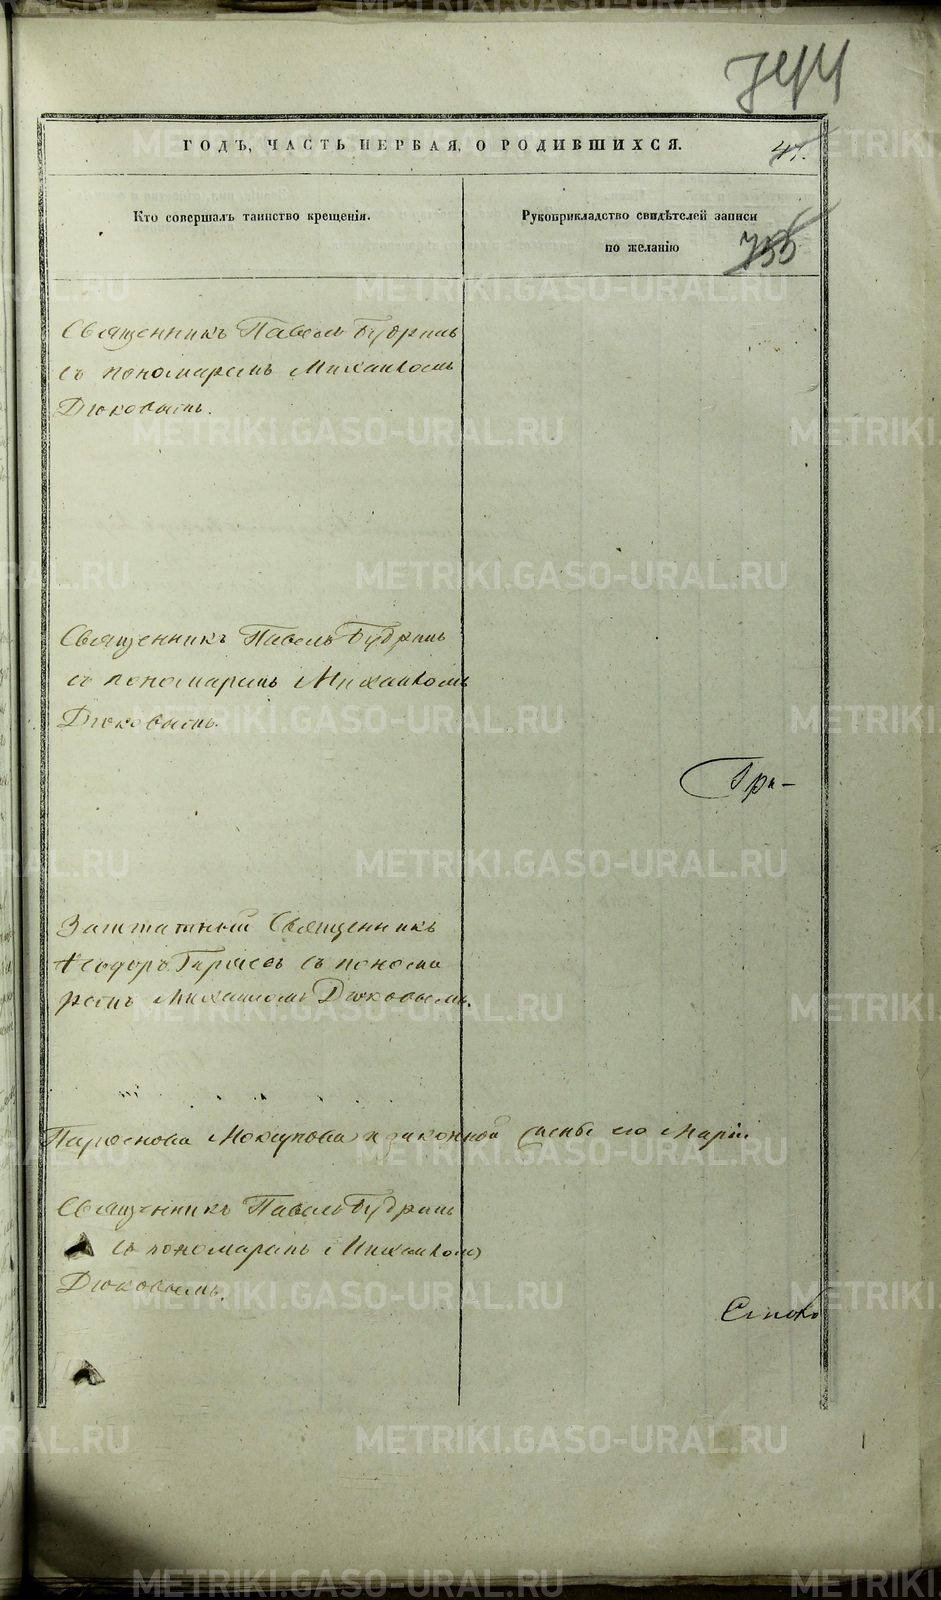 744
ГОДЪ, ЧАСТЬ ПЕРВАЯ, О РОДИВШИХСЯ.
Кто совершалъ таинство крещенія.
Рукоприкладство свидѣтелей записи
по желанію
755
Священникъ Павелъ Будринъ
съ пономаремъ Михаиломъ
Дюковымъ.
Священникъ Павелъ Будринъ
съ пономаремъ Михаиломъ
Дюковымъ.
Гри-
Заштатный Священникъ
Ѳеодоръ съ понома
ремъ Михаиломъ Дюковымъ.
законной жены его Маріи
Священникъ Павелъ Будринъ
съ пономаремъ Михаиломъ
Дюковымъ.
METRIKI.GASO-URAL.RU